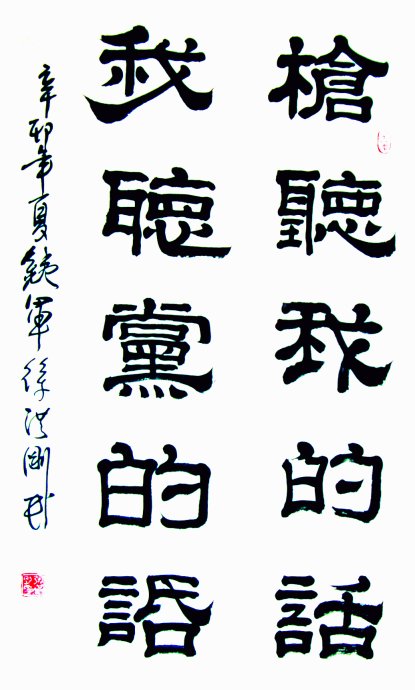 槍聽我的話
我聽黨的話
辛卯年夏鐵軍徐洪剛书